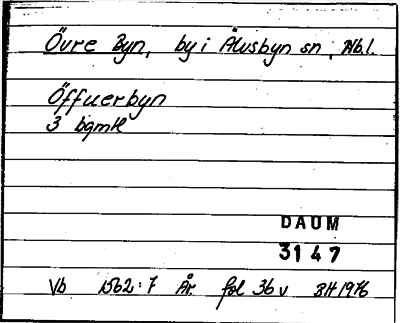 Övre Byn, by i Älvsbyn sn, Nb.l.
Öffuerbyn
3 bgmtl
DAUM
3147
Vb 1562:7 År fol 36 v BH 1976